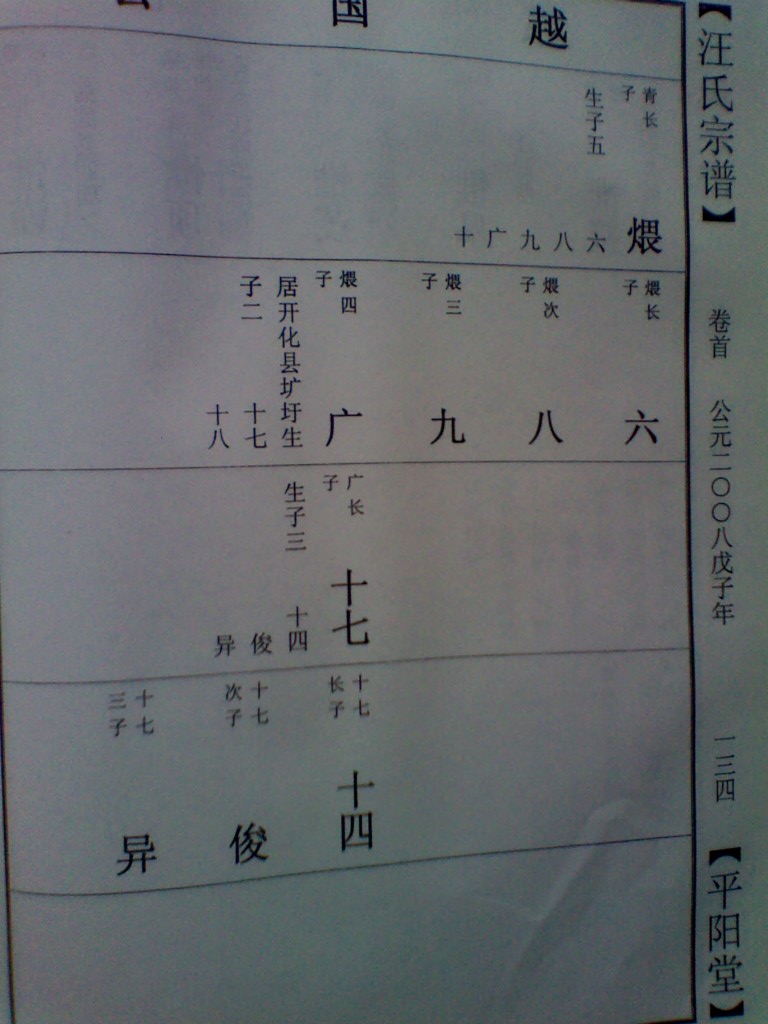 【汪氏宗谱】
卷首
公元二〇〇八戊子年
一三四
【平阳堂】
越
国
青长
子
煨
生子五
六
八
九
广
十
煨长
子
六
煨次
子
八
煨三
子
九
煨四
子
广
居开化县圹圩生
子二
十七
十八
广长
子
十七
生子三
十四
俊
异
十七
长子
十四
十七
次子
俊
十七
三子
异